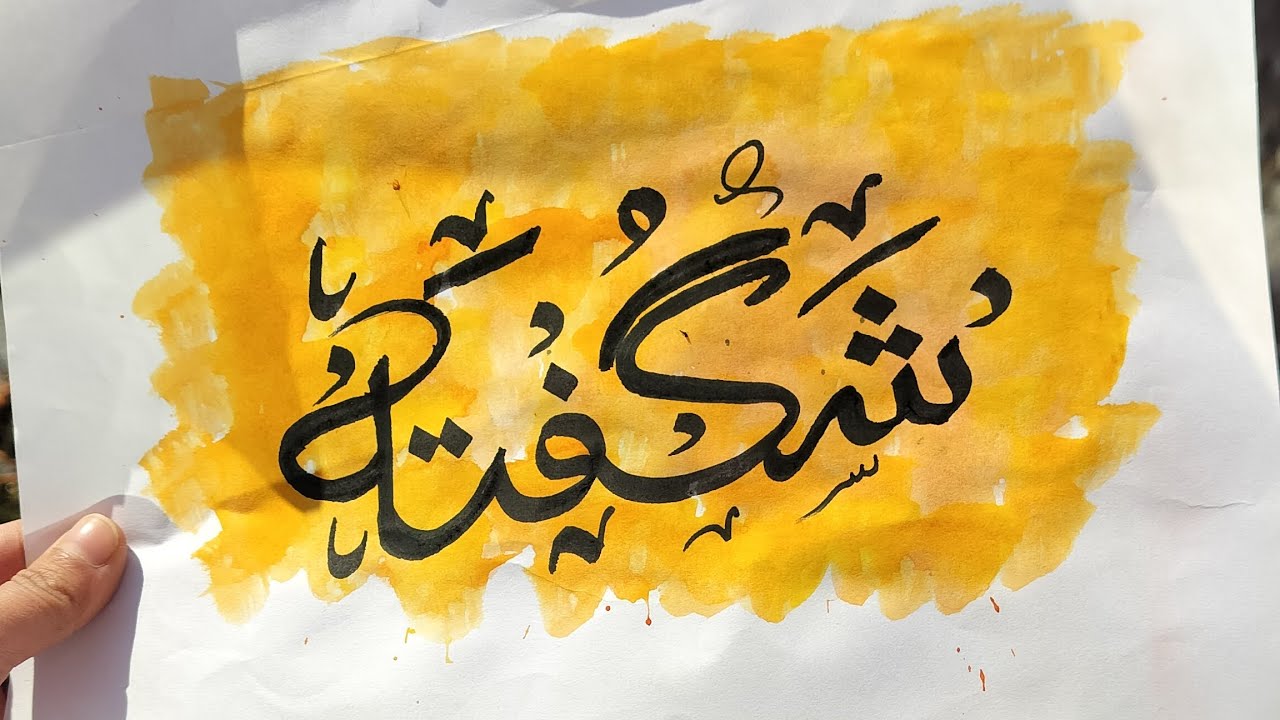 شگفتہ